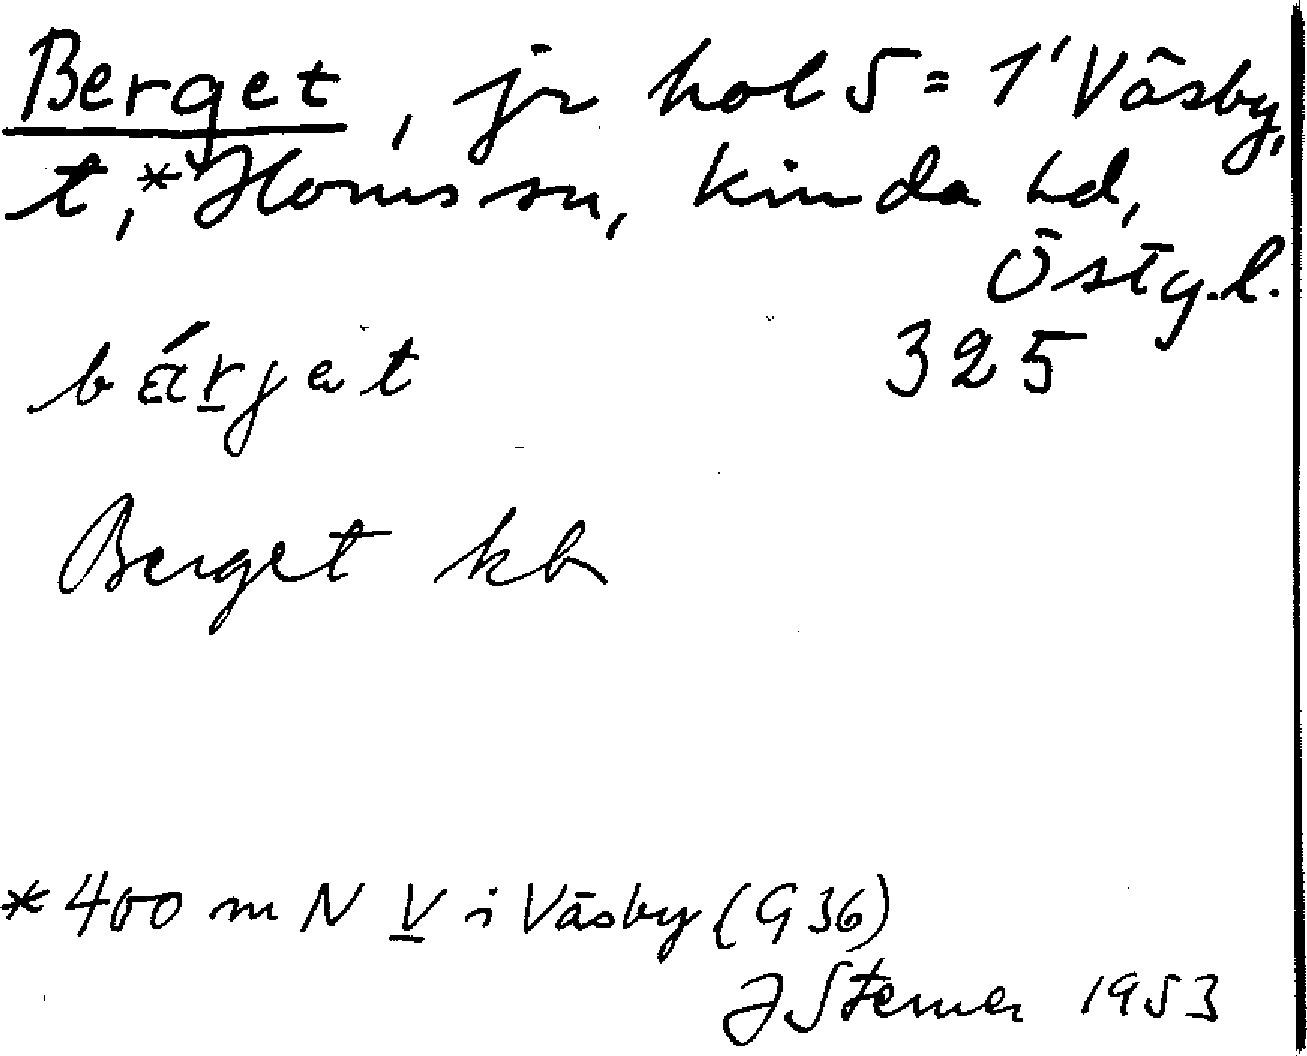 Berget, jr hol 5 = 1' Väsby,
t,* Horns sn, Kinda hd,
Östg.l.
bærjat 325
Berget kb
* 400 m N V i Väsby (G 36)
J Sterner 1953